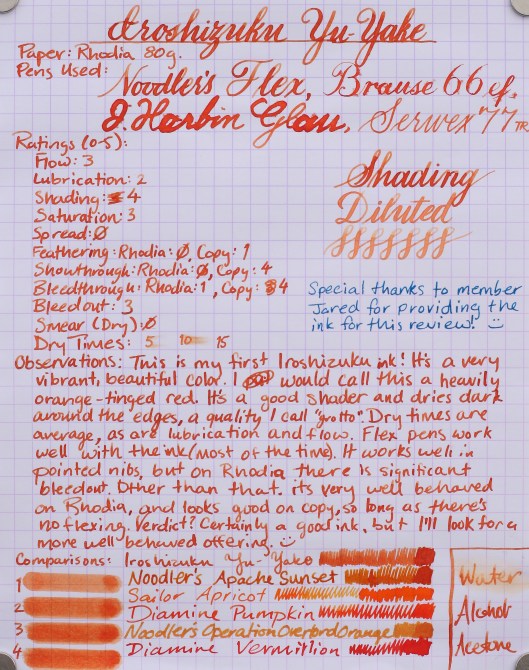 Iroshizuku Yu-Yake
Paper: Rhodia 80g.
Pens Used:
Noodler's Flex, Brause 66 ef,
J. Herbin Glass, Serwex 77 TR
Ratings (0-5):
Flow: 3
Lubrication: 2
Shading: 4
Saturation: 3
Spread: 0
Feathering: Rhodia: 0, Copy: 1
Showthrough: Rhodia: 0, Copy: 4
Bleedthrough: Rhodia: 1, Copy: 4
Bleedout: 3
Smear (Dry): 0
Dry Times: 5 10 15
Shading
Diluted
Special thanks to member
Jared for providing the
ink for this review! :)
Observations: This is my first Iroshizuku ink! It's a very
vibrant, beautiful color. I would call this a heavily
orange-tinged red. It's a good shader and dries dark
around the edges, a quality I call "grotto". Dry times are
average, as are lubrication and flow. Flex pens work
well with the ink (most of the time). It works well in
pointed nibs, but on Rhodia there is significant
bleedout. Other than that, its very well behaved
on Rhodia, and looks good on copy, so long as there's
no flexing. Verdict? Certainly a good ink, but I'll look for a
more well behaved offering. :)
Comparisons: Iroshizuku Yu-Yake
1 Noodler's Apache Sunset
Sailor Apricot
2 Diamine Pumpkin
3 Noodler's Operation Overlord Orange
4 Diamine Vermillion
Water
Alcohol
Acetone